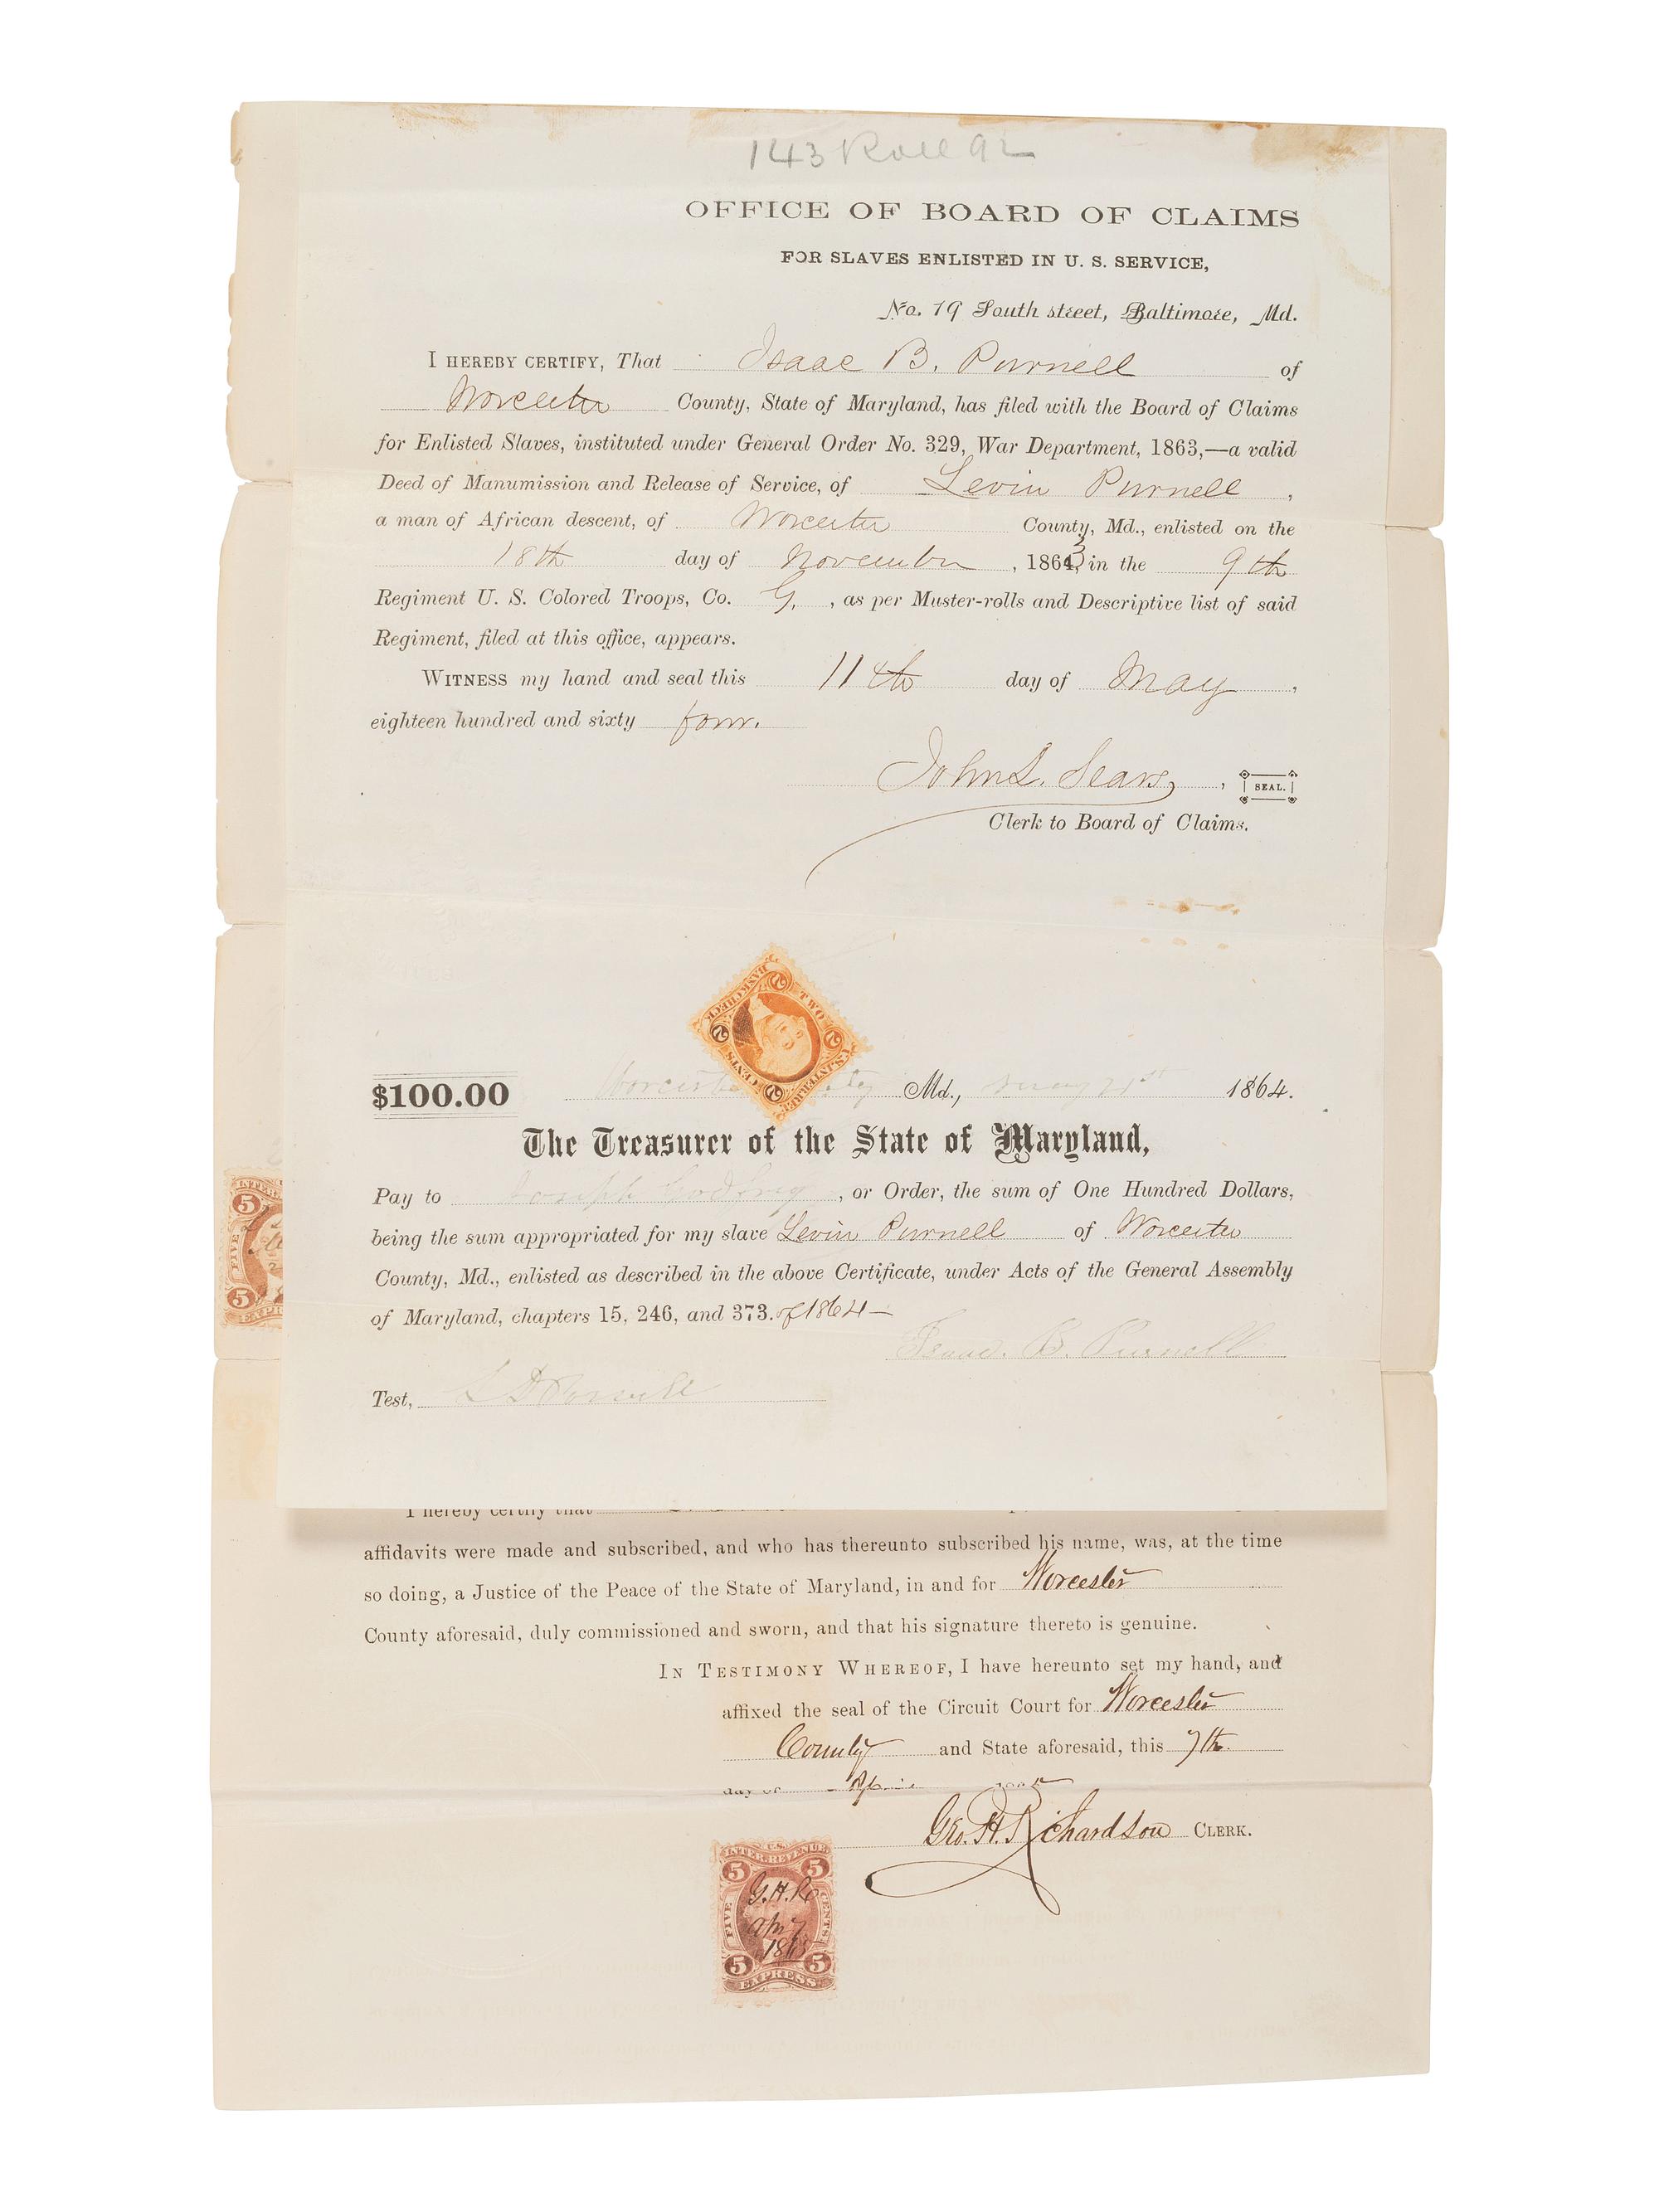 143 Roll 92
OFFICE OF BOARD OF CLAIMS
FOR SLAVES ENLISTED IN U. S. SERVICE,
No. 19 South street, Baltimore, Md.
I HEREBY CERTIFY, That Isaac B. Purnell of
Worcester County, State of Maryland, has filed with the Board of Claims
for Enlisted Slaves, instituted under General Order No. 329, War Department, 1863,—a valid
Deed of Manumission and Release of Service, of Levin Purnell,
a man of African descent, of Worcester County, Md., enlisted on the
18th day of November, 1863, in the 9th
Regiment U. S. Colored Troops, Co. G, as per Muster-rolls and Descriptive list of said
Regiment, filed at this office, appears.
WITNESS my hand and seal this 11th day of May,
eighteen hundred and sixty four.
John L. Sears, SEAL.
Clerk to Board of Claims.
U.S. INTER. REV. TWO CENTS BANK CHECK 2 2 2 2
$100.00 Worcester Md., May 21st 1864.
The Treasurer of the State of Maryland,
Pay to Joseph, or Order, the sum of One Hundred Dollars,
being the sum appropriated for my slave Levin Purnell of Worcester
County, Md., enlisted as described in the above Certificate, under Acts of the General Assembly
of Maryland, chapters 15, 246, and 373. of 1864—
Isaac. B. Purnell
Test,
5 FIVE 5
I hereby certify that
affidavits were made and subscribed, and who has thereunto subscribed his name, was, at the time
so doing, a Justice of the Peace of the State of Maryland, in and for Worcester
County aforesaid, duly commissioned and sworn, and that his signature thereto is genuine.
IN TESTIMONY WHEREOF, I have hereunto set my hand, and
affixed the seal of the Circuit Court for Worcester
County and State aforesaid, this 7th
day of
Geo. H. Richardson CLERK.
U.S. INTER. REVENUE
5 5
FIVE CENTS
G.H.R
Apr 7
1865
5 5
EXPRESS